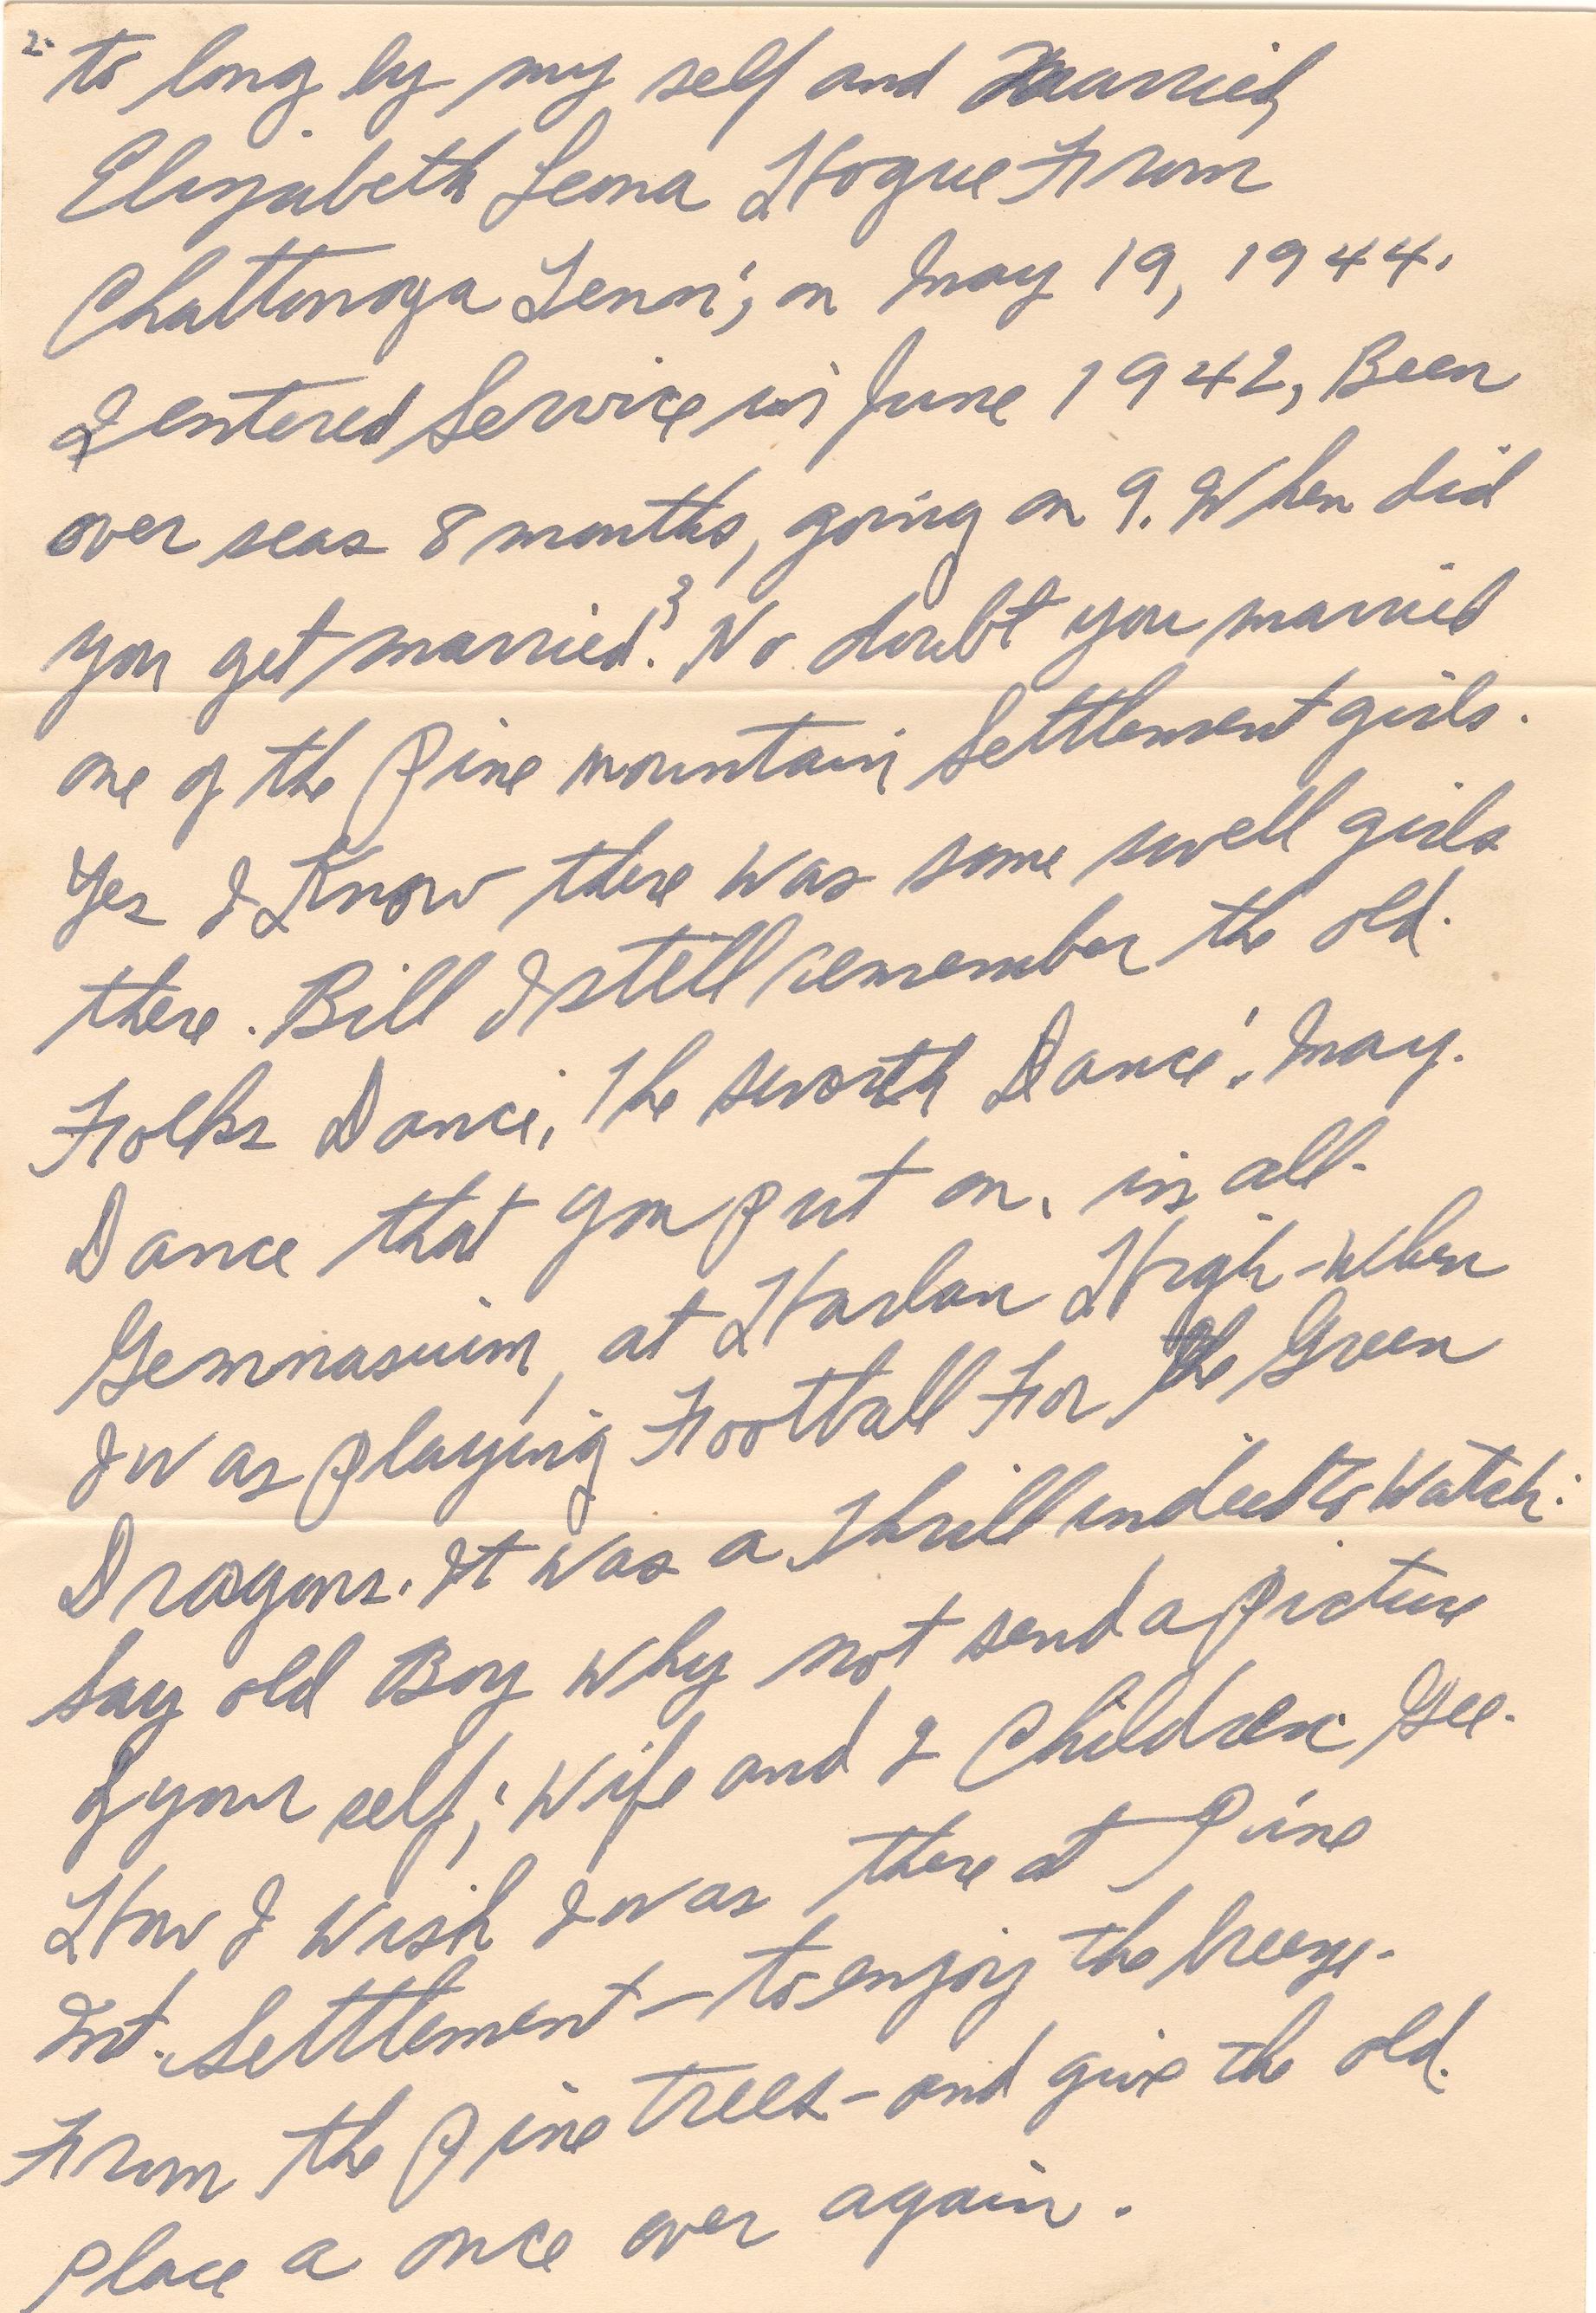 2.
to long by my self and married,
Elizabeth Leona Hogue From
Chattonoga Tenn', on May 19, 1944.
I entered Service in June 1942, Been
over seas 8 months, going on 9. When did
you get married? No doubt you married
one of the Pine mountain Settlement girls.
Yes I Know there was some swell girls
there. Bill I still remember the old.
Folks Dance, The sworth Dance', May.
Dance that you put on, in all.
Gemnasuim, at Harlan High - When
I was playing Football For the Green
Dragons. It was a Thrill indeed to Watch.
Say old Boy why not send a picture
of your self; Wife and 2 Children. Gee.
How I wish I was there at Pine
Mt. Settlement - to enjoy the breeze.
From the Pine Trees - and give the old.
place a once over again.